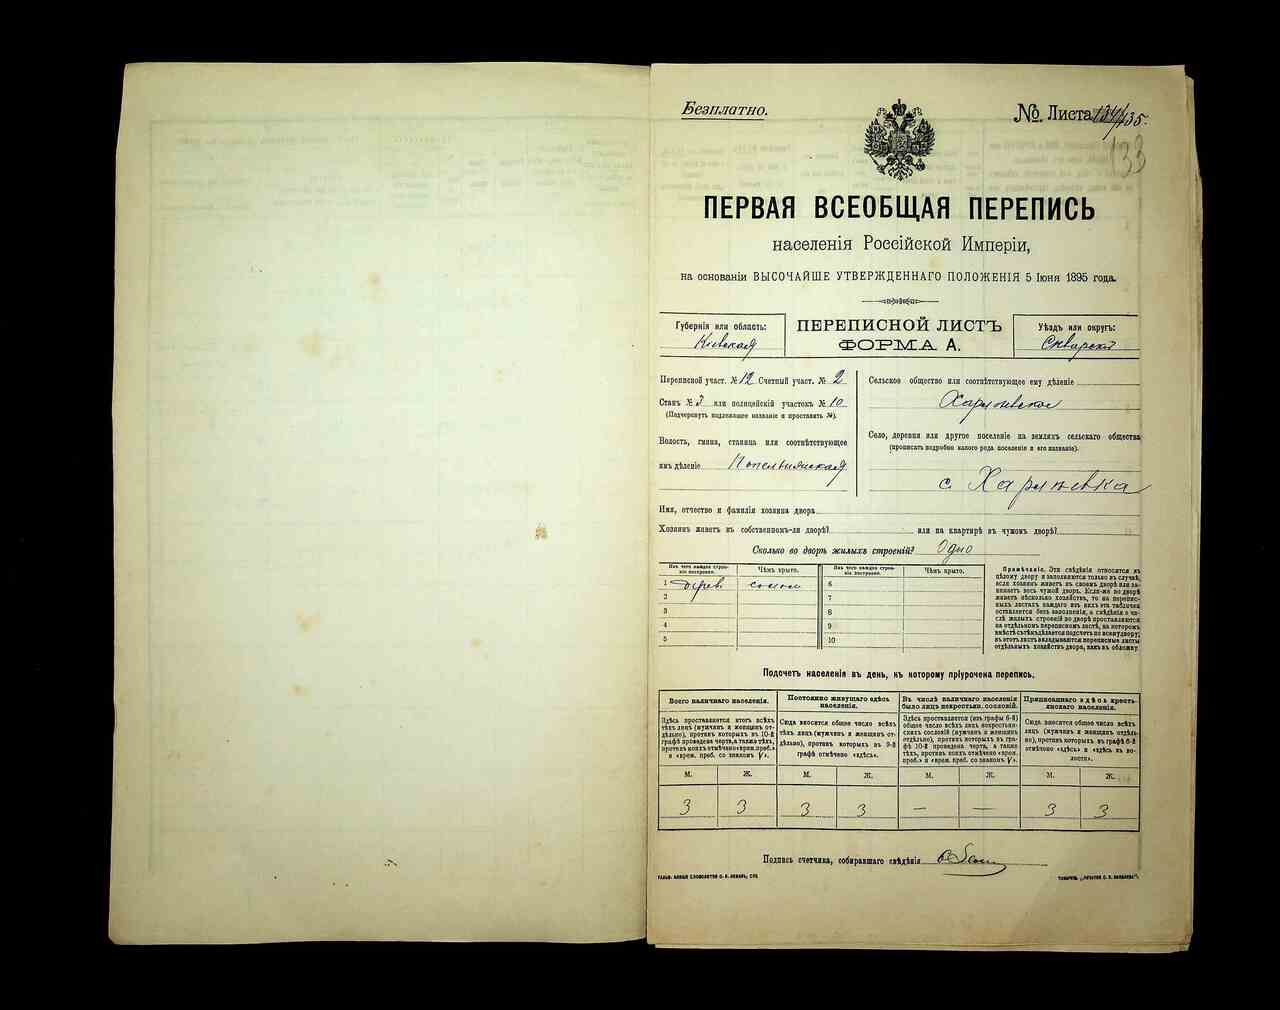 Безплатно.
№. Листа 134/135.
133
ПЕРВАЯ ВСЕОБЩАЯ ПЕРЕПИСЬ
населенія Россійской Имперіи,
на основаніи ВЫСОЧАЙШЕ УТВЕРЖДЕННАГО ПОЛОЖЕНІЯ 5 Іюня 1895 года.
Губернія или область:
Кіевская
ПЕРЕПИСНОЙ ЛИСТЪ
ФОРМА А.
Уѣздъ или округъ:
Сквирскій
Переписной участ. № 12 Счетный участ. № 2
Станъ № 3 или полицейскій участокъ № 10
(Подчеркнуть надлежащее названіе и проставить №).
Волость, гмина, станица или соотвѣтствующее
имъ дѣленіе Попельнянская
Сельское общество или соотвѣтствующее ему дѣленіе
Харлиевское
Село, деревня или другое поселеніе на земляхъ сельскаго общества
(прописать подробно какого рода поселеніе и его названіе).
с. Харлиевка
Имя, отчество и фамилія хозяина двора
Хозяинъ живетъ въ собственномъ-ли дворѣ? или на квартирѣ въ чужомъ дворѣ?
Сколько во дворѣ жилыхъ строеній? Одно
Изъ чего каждое строеніе построено. Чѣмъ крыто. Изъ чего каждое строеніе построено. Чѣмъ крыто.
1 дерев. солом. 6
2 7
3 8
4 9
5 10
Примѣчаніе. Эти свѣдѣнія относятся къ
цѣлому двору и заполняются только въ случаѣ,
если хозяинъ живетъ въ своемъ дворѣ или занимаетъ
весь чужой дворъ. Если-же во дворѣ
живетъ нѣсколько хозяйствъ, то на переписныхъ
листахъ каждаго изъ нихъ эта табличка
оставляется безъ заполненія, а свѣдѣнія о числѣ
жилыхъ строеній во дворѣ проставляются
на отдѣльномъ переписномъ листѣ, на которомъ
вмѣстѣ съ тѣмъ дѣлается подсчетъ по всему двору;
въ этотъ листъ вкладываются переписные листы
отдѣльныхъ хозяйствъ двора, какъ въ обложку.
Подсчетъ населенія въ день, къ которому пріурочена перепись.
Всего наличнаго населенія.
Здѣсь проставляется итогъ всѣхъ
тѣхъ лицъ (мужчинъ и женщинъ отдѣльно),
противъ которыхъ въ 10-й
графѣ проведена черта, а также тѣхъ,
противъ коихъ отмѣчено «врем. преб.»
и «врем. преб. со знакомъ V».
Постоянно живущаго здѣсь
населенія.
Сюда вносится общее число всѣхъ
тѣхъ лицъ (мужчинъ и женщинъ отдѣльно),
противъ которыхъ въ 9-й
графѣ отмѣчено «здѣсь».
Въ числѣ наличнаго населенія
было лицъ некрестьян. сословій.
Здѣсь проставляется (изъ графы 6-й)
общее число всѣхъ некрестьянскихъ
сословій (мужчинъ и женщинъ
отдѣльно), противъ которыхъ въ графѣ
10-й проведена черта, а также
тѣхъ, противъ коихъ отмѣчено «врем.
преб.» и «врем. преб. со знакомъ V».
Приписаннаго здѣсь крестьянскаго
населенія.
Сюда вносится общее число всѣхъ
лицъ (мужчинъ и женщинъ отдѣльно),
противъ которыхъ въ графѣ 8-й
отмѣчено «здѣсь» и «здѣсь въ волости».
М. Ж. М. Ж. М. Ж. М. Ж.
3 3 3 3 — — 3 3
Подпись счетчика, собиравшаго свѣдѣнія